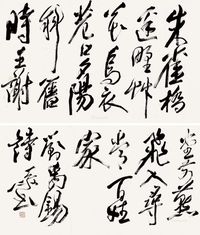 朱雀橋
邊野艸
花烏衣
巷口夕陽
斜舊
時王謝
堂前燕
飛入尋
常百姓
家
劉禹錫
詩